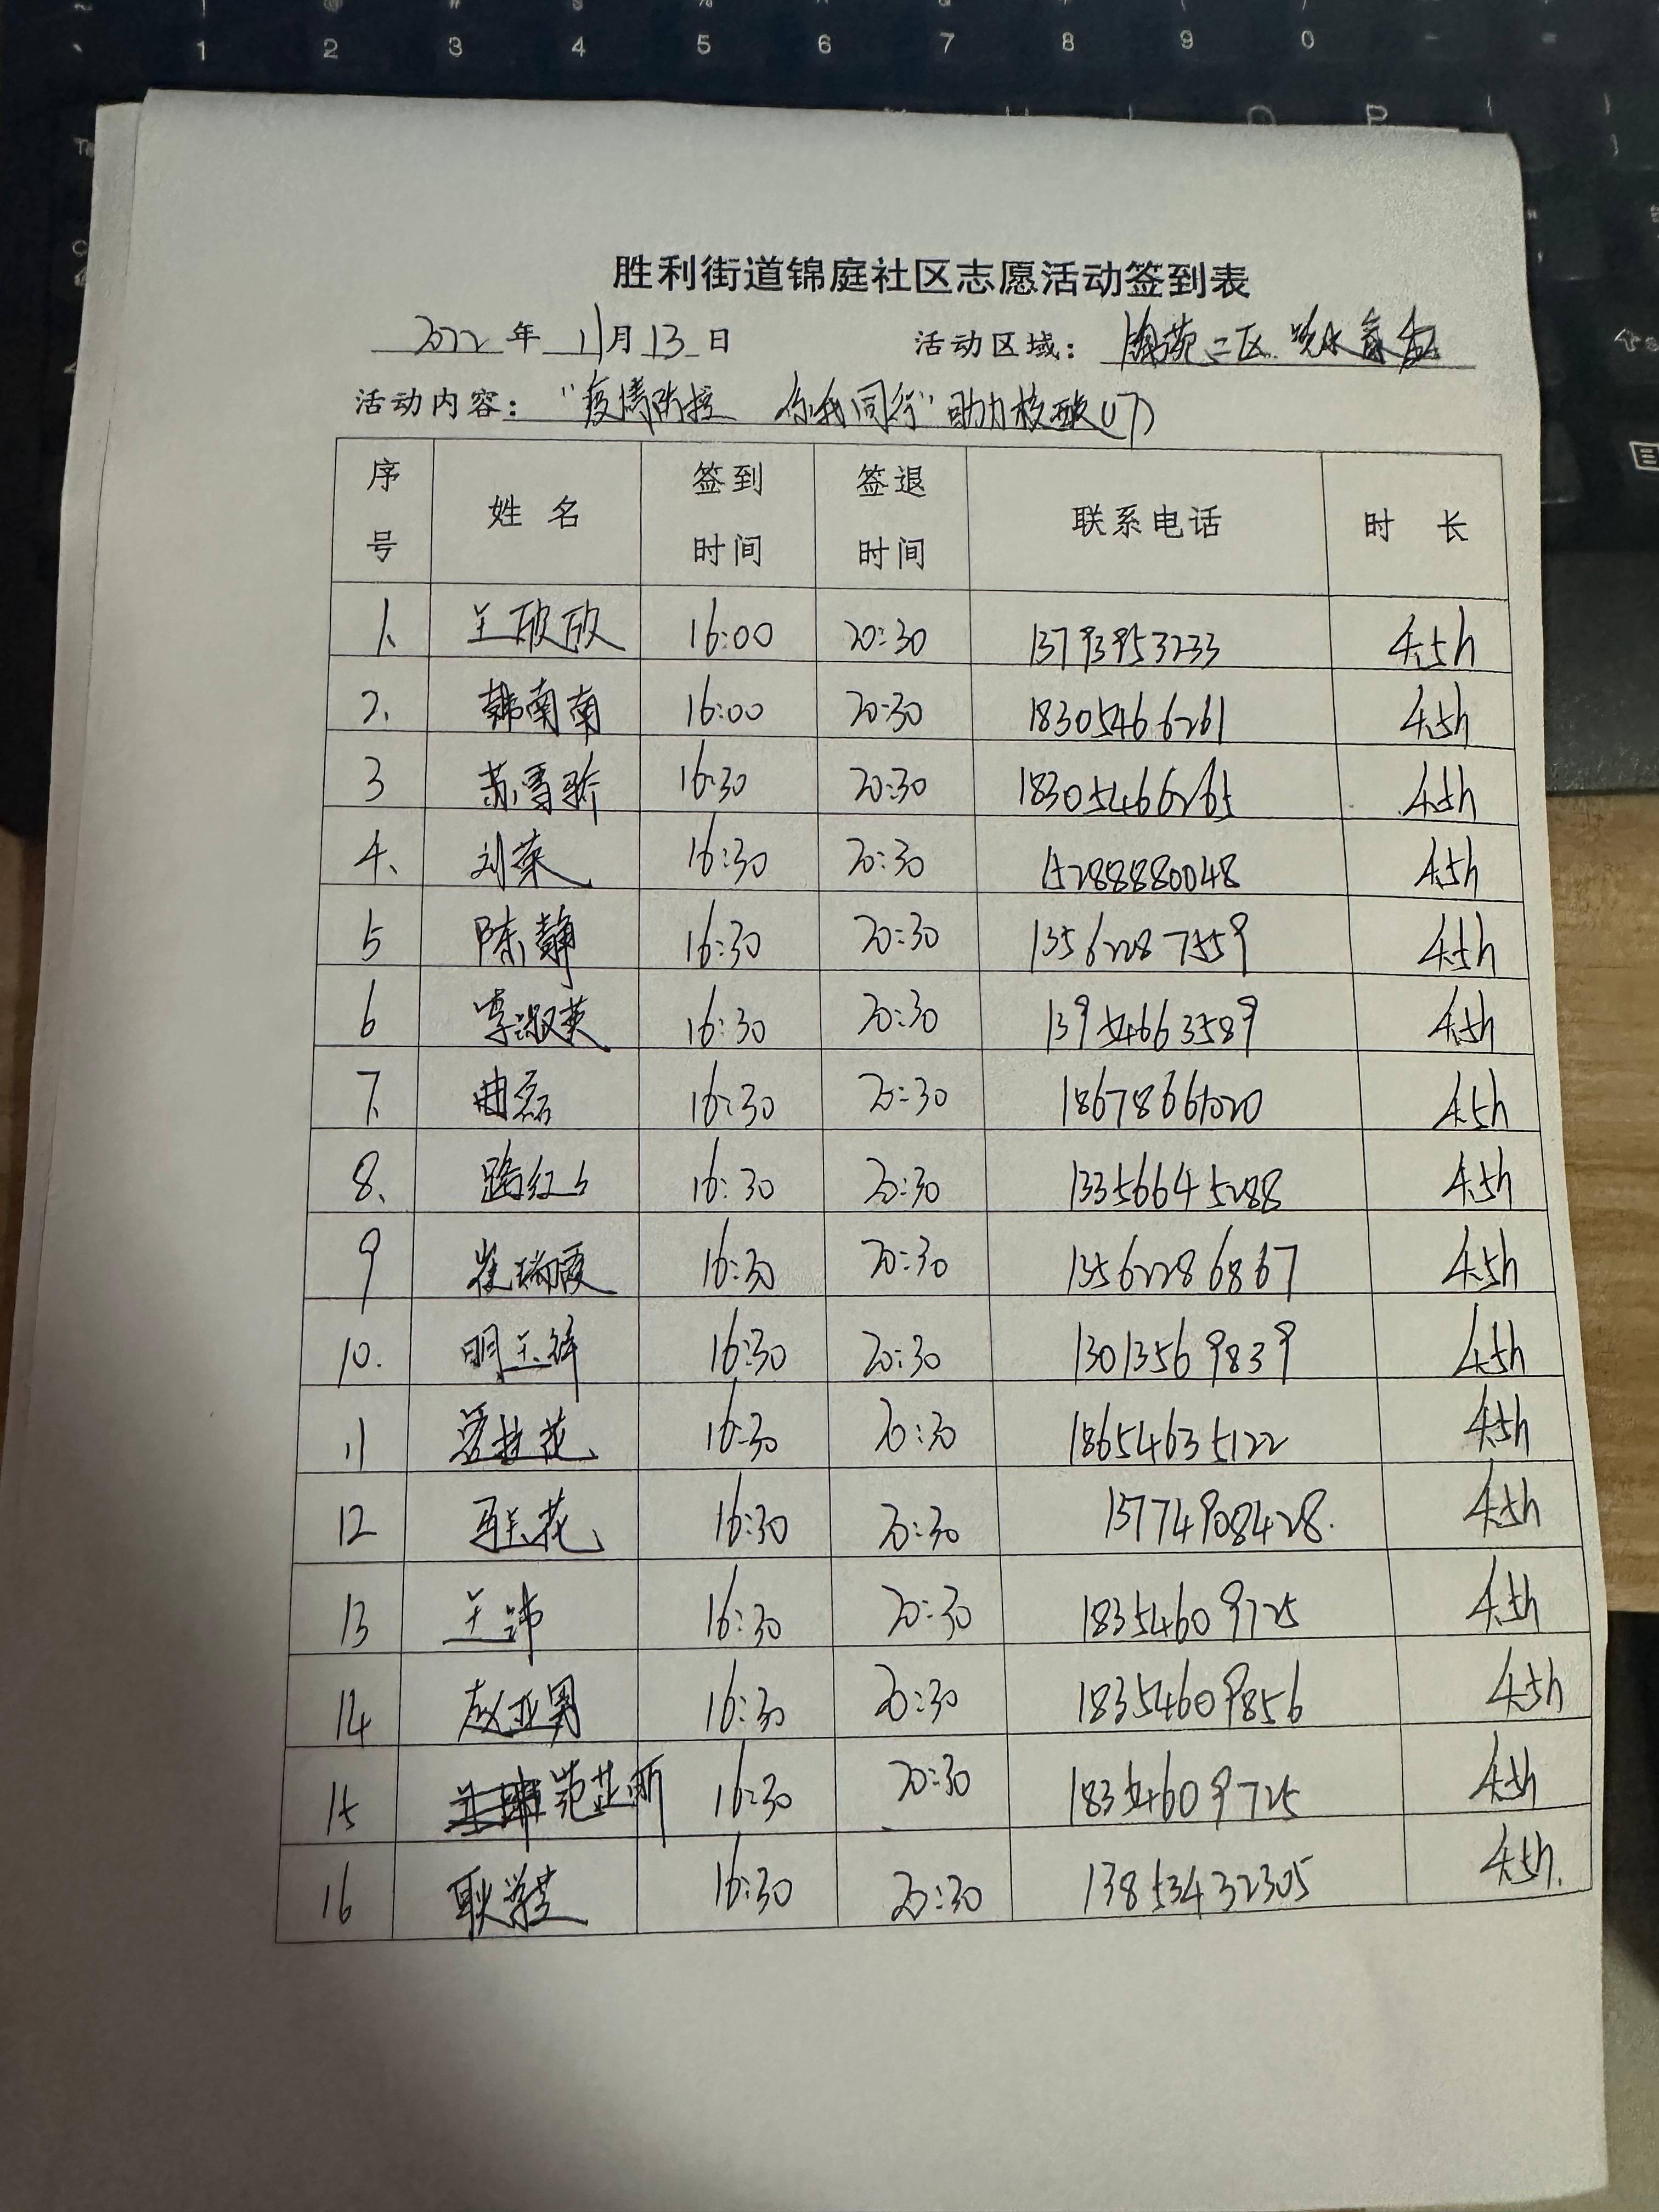 胜利街道锦庭社区志愿活动签到表
2022年11月13日 活动区域：锦苑二区.悦水
活动内容：“疫情防控 你我同行”助力核酸(17)
序号 姓名 签到时间 签退时间 联系电话 时长
1、 王欣欣 16:00 20:30 13793953233 4.5h
2、 韩南南 16:00 20:30 18305466261 4.5h
3 苏雪骄 16:30 20:30 18305466265 4.5h
4、 刘荣 16:30 20:30 15288880048 4.5h
5 陈静 16:30 20:30 13562287559 4.5h
6 李淑英 16:30 20:30 13954663589 4.5h
7、 曲磊 16:30 20:30 18678661020 4.5h
8、 路红 16:30 20:30 13356645288 4.5h
9 崔瑞霞 16:30 20:30 13562286867 4.5h
10. 明玉 16:30 20:30 13013569839 4.5h
11 花 16:30 20:30 18654635122 4.5h
12 玉花 16:30 20:30 13774908428. 4.5h
13 王沛 16:30 20:30 18354609725 4.5h
14 赵亚男 16:30 20:30 18354609856 4.5h
15 范芷昕 16:30 20:30 18354609725 4.5h
16 耿 16:30 20:30 13853432305 4.5h.